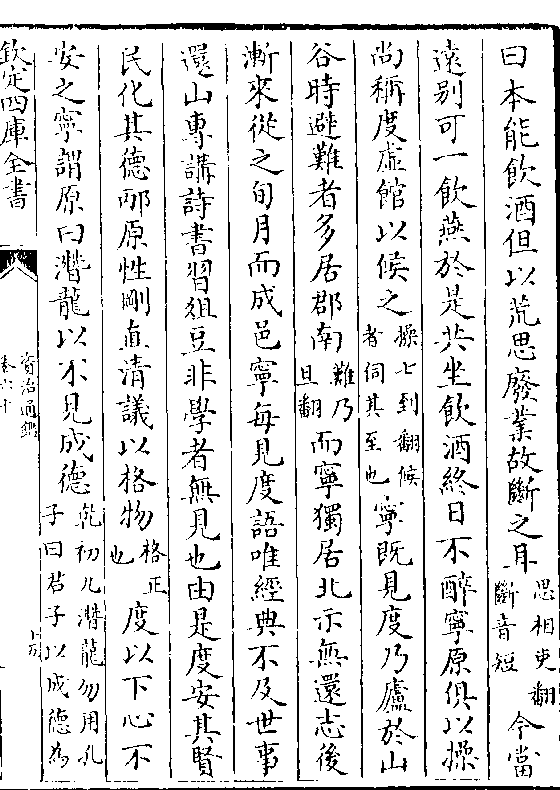 曰本能飲酒但以荒思廢業故斷之耳思相吏翻斷音短今當
遠别可一飲燕於是共坐飲酒終日不醉寧原俱以操
尚稱度虚館以候之操七到翻候者伺其至也寧既見度乃廬於山
谷時避難者多居郡南難乃旦翻而寧獨居北示無還志後
漸來從之旬月而成邑寧每見度語唯經典不及世事
還山專講詩書習俎豆非學者無見也由是度安其賢
民化其德邴原性剛直清議以格物格正也度以下心不
安之寧謂原曰潛龍以不見成德乾初九潛龍勿用孔子曰君子以成德為
欽定四庫全書
資治通鑑
卷六十